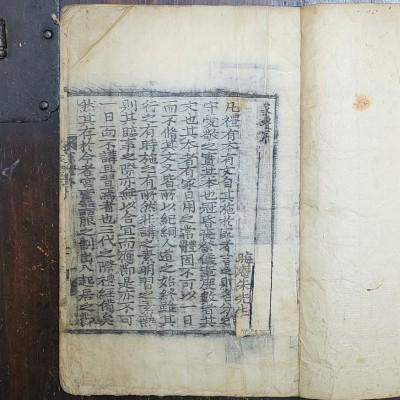 家禮序
晦菴朱先生
凡禮有本有文自其施於家者言之則名分之
守愛敬之實其本也冠昏喪祭儀章度數者其
文也其本者有家日用之常體固不可以一日
而不脩其文又皆所以紀綱人道之始終雖其
行之有時施之有所然非講之素明習之素熟
則其臨事之際亦無以合宜而應節是亦不可
一日而不講且習焉者也三代之際禮經備矣
然其存於今者宮廬器服之制出入起居之節